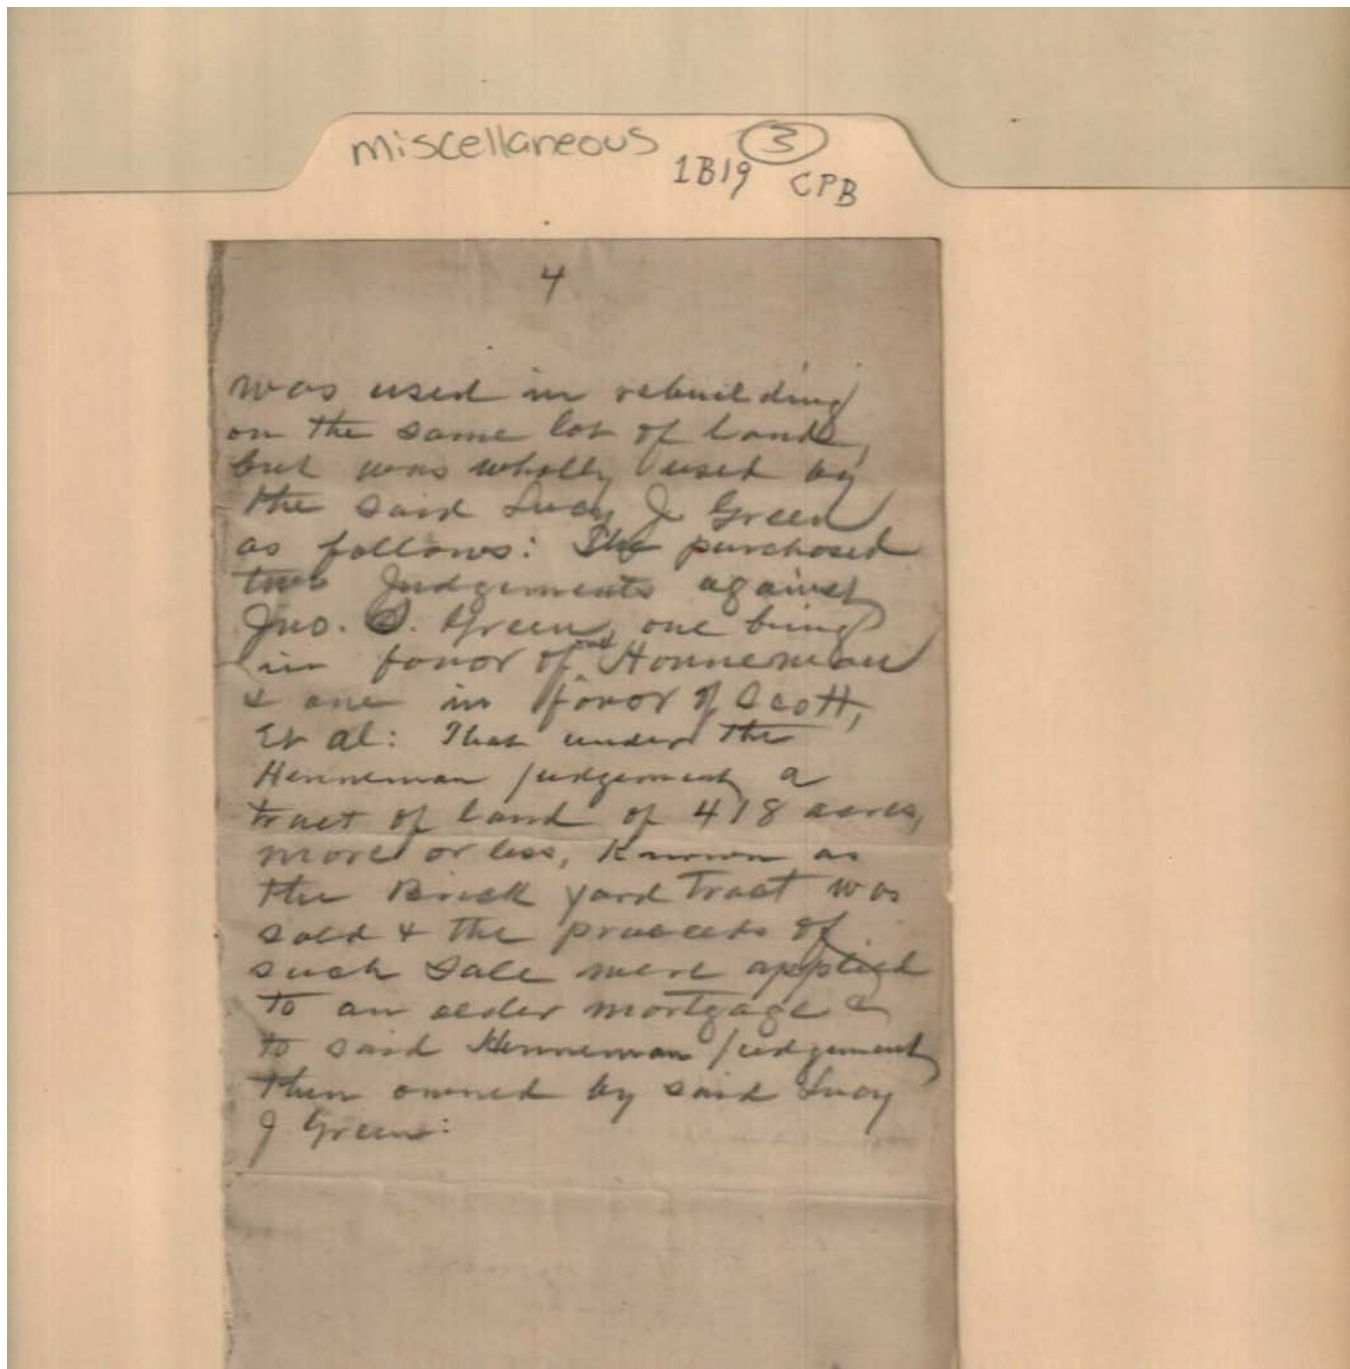 miscellaneous 3
1B19 CPB
4
was used in rebuilding
on the same lot of land,
but was wholly used by
the said Lucy J Green
as follows: She purchased
two Judgements against
Jno. S. Green, one being
in favor of Honneman
& one in favor of Scott,
Et al: That under the
Henneman judgement a
tract of land of 418 acres,
more or less, Known as
the Brick yard Tract was
sold & the proceeds of
such sale were applied
to an older mortgage &
to said Henneman judgement
then owned by said Lucy
J Green: